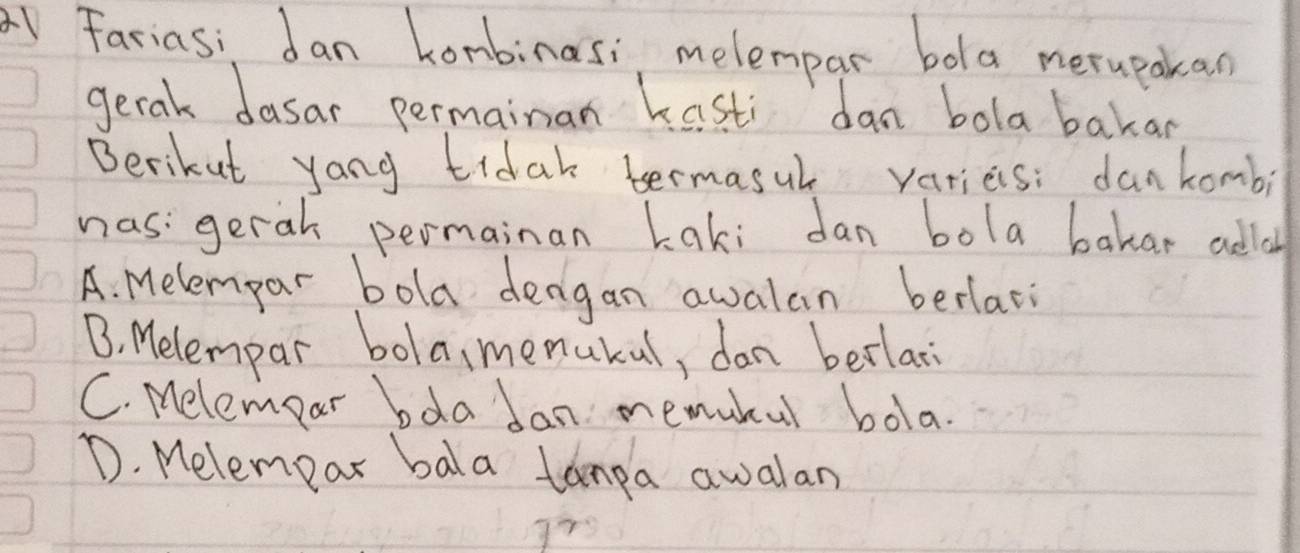 21 Fariasi dan kombinasi melempar bola merupakan
gerak dasar permainan kasti dan bola bakar
Berikut yang tidak termasuk variasi dan kombi
nasi gerak permainan kaki dan bola bakar adlah
A. Melempar bola dengan awalan berlari
B. Melempar bola, memukul, dan berlari
C. Melempar bola dan memukul bola.
D. Melempar bala tanpa awalan